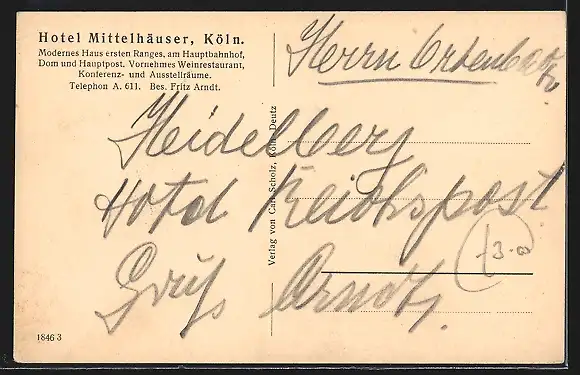 Hotel Mittelhäuser, Köln.
Modernes Haus ersten Ranges, am Hauptbahnhof,
Dom und Hauptpost. Vornehmes Weinrestaurant,
Konferenz- und Ausstellräume.
Telephon A. 611. Bes. Fritz Arndt.
Herrn
Heidelberg
Hotel Reichspost
Gruß Arndt.
Verlag von Carl Scholz, Köln-Deutz
1846 3